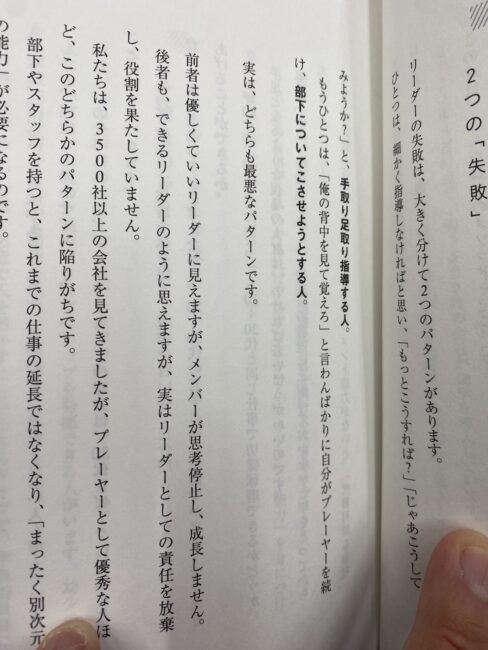 2つの「失敗」
リーダーの失敗は、大きく分けて2つのパターンがあります。
ひとつは、細かく指導しなければと思い、「もっとこうすれば？」「じゃあこうして
みようか？」と、手取り足取り指導する人。
もうひとつは、「俺の背中を見て覚えろ」と言わんばかりに自分がプレーヤーを続
け、部下についてこさせようとする人。
実は、どちらも最悪なパターンです。
前者は優しくていいリーダーに見えますが、メンバーが思考停止し、成長しません。
後者も、できるリーダーのように思えますが、実はリーダーとしての責任を放棄
し、役割を果たしていません。
私たちは、3500社以上の会社を見てきましたが、プレーヤーとして優秀な人ほ
ど、このどちらかのパターンに陥りがちです。
部下やスタッフを持つと、これまでの仕事の延長ではなくなり、「まったく別次元
の能力」が必要になるのです。